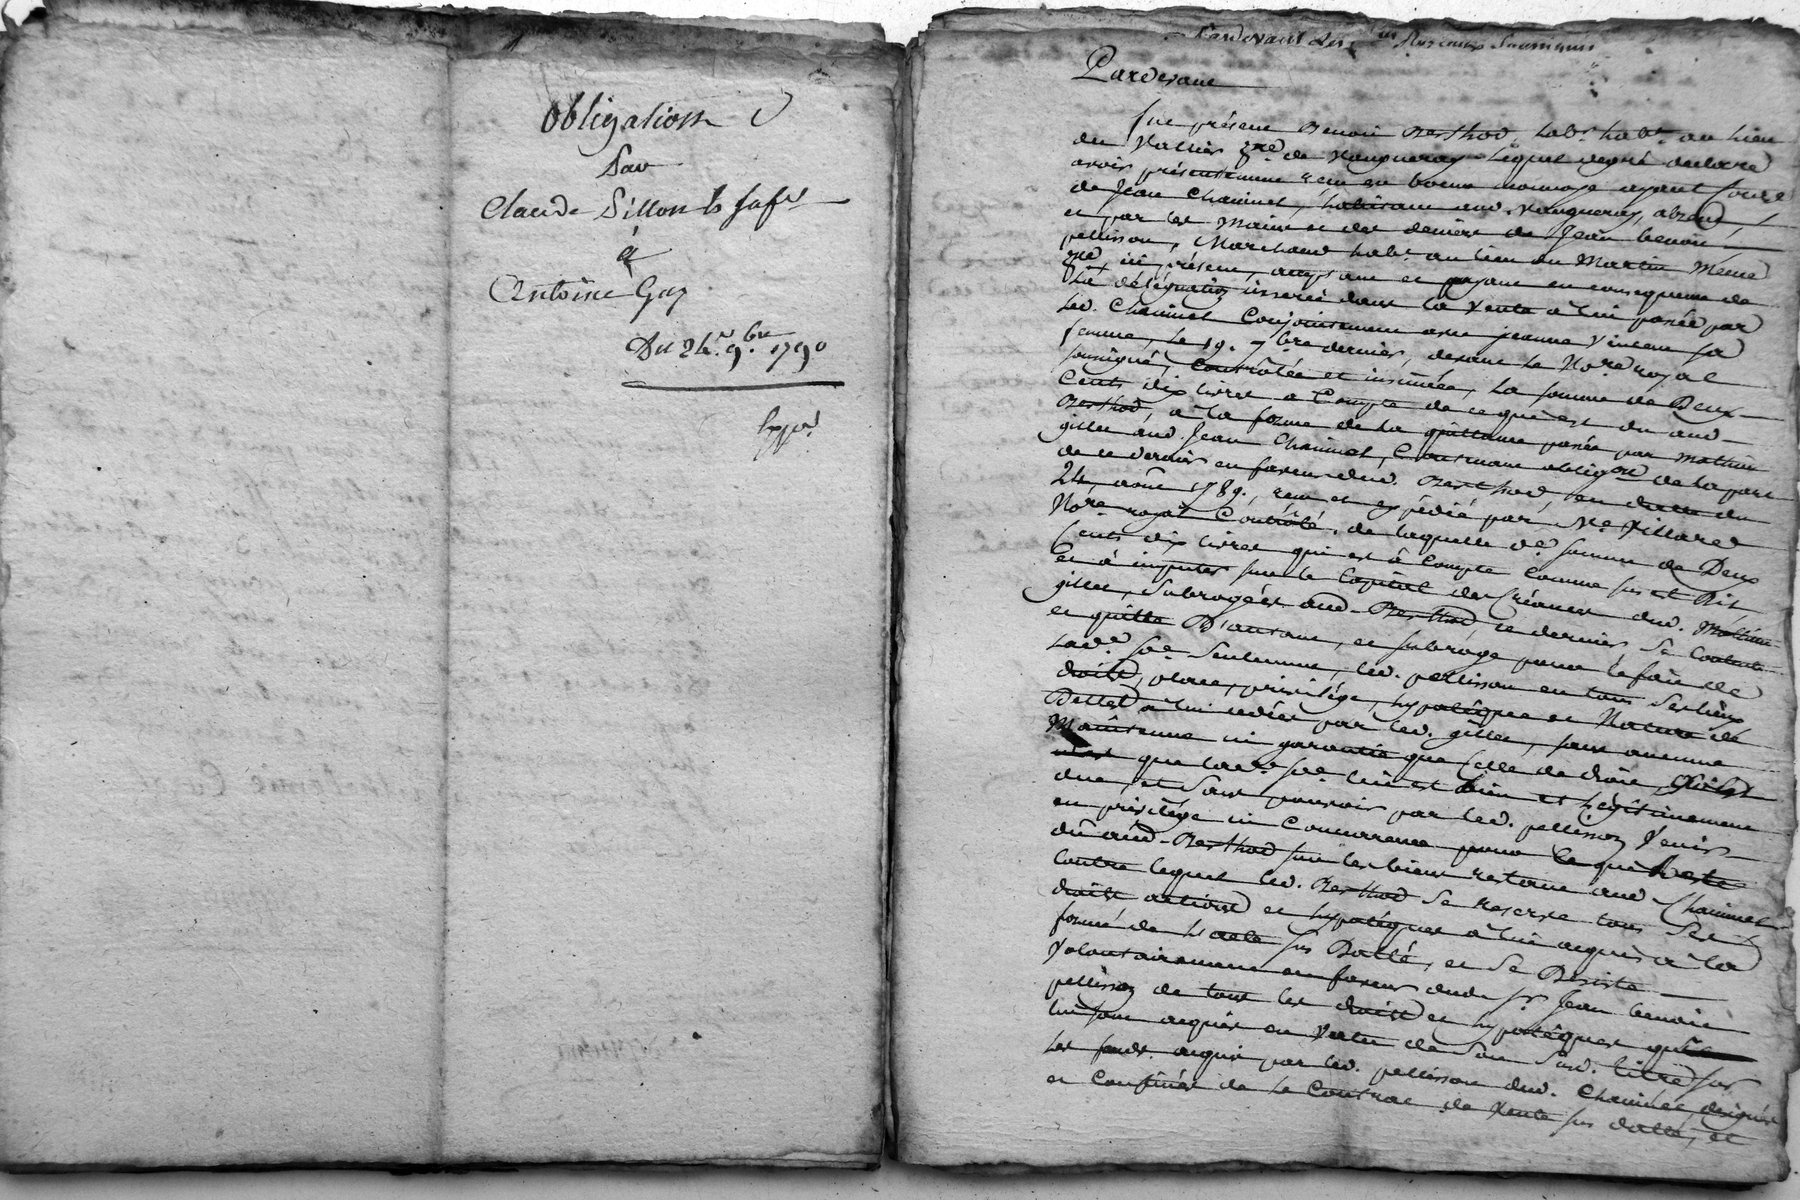 Obligation
Par
Claude Pillon
à
Antoine Gay
Du 24e 9bre 1790
Pardevant les Notaires Soussignés
Pardevant
fut présent Benoit Berthod, labr habt au lieu
du Vallier psse de Vaugneray, lequel de gré declare
avoir présentement reçu en bonne monnoye ayant cours
de Jean Chaminet, habitant aud. Vaugneray, absent
et par les mains et des deniers de Jean benoit
pellisson, Marchand habt au lieu du Martin même
psse, ici présent, acceptant et payant en consequence de
la délégation inserée dans la Vente à lui passée par
led. Chaminet Conjointement avec jeanne Vincent sa
femme, le 19. 7bre dernier, devant le Nore royal
soussigné, Contrôlée et insinuée, la somme de Deux
Cents dix livres a Compte de ce qui est du aud.
Berthod, à la forme de la quittance passée par mathieu
gillet aud. Jean Chaminet, Contenant obligon de la part
de ce dernier en faveur dud. Berthod, en datte du
24 aout 1789., reçu et expédié par Me Villard
Nore royal Contrôlé, de laquelle de somme de Deux
Cents dix livres qui est à Compte Comme sus est Dit
et à imputer sur le Capital des Créances dud. Mathieu
gillet, Subrogées aud. Berthod, ce dernier se Contente
et quitte D'autant, et subroge pour le fait de
lad. soe Seulement, led. pellisson en tous ses lieux
droits, place, privilège, hypotèques et Nature de
Dettes à lui cedées par led. gillet, sans aucune
Maintenue ni garantie que Celle de droit,
que lade soe lui est bien et légitimement
due et Sans pouvoir par led. pellisson Venir
en privilège ni Concurrence pour ce qui reste
dû aud. Berthod sur les biens restant aud. Chaminet
Contre lequel led. Berthod se reserve tous ses
droits actions et hypotèques à lui acquis à la
forme de l'acte sus Datté, et se Desiste
Volontairement en faveur dud. sr Jean benoit
pellisson de tous les droits et hypotèques qui
lui sont acquis en Vertu de son sud. titre sur
les fonds acquis par led. pellisson dud. Chaminet, designés
et Confinés de le Contrat de Vente sus datté, et